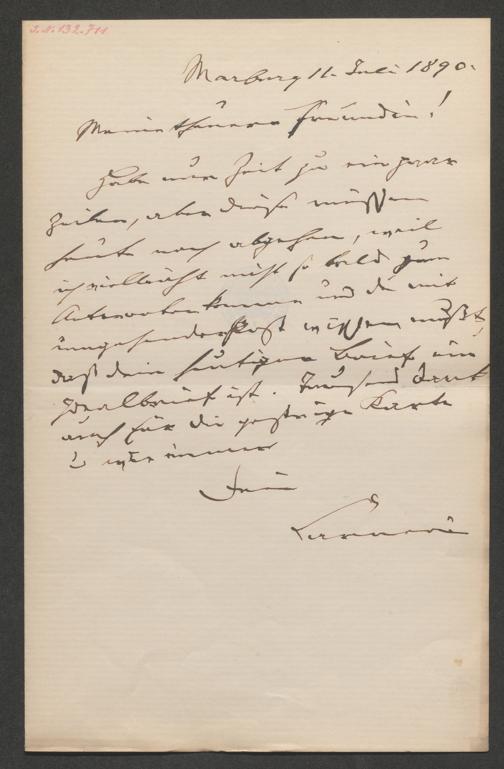 J.N. 132.711
Marburg 11. Juli 1890.
Meine theuere Freundin!
Habe nur Zeit zu ein paar
Zeilen, aber diese müssen
heute noch abgehen, weil
ich vielleicht nicht so bald zum
Antworten komme und du mit
umgehender Post wissen mußt,
daß dein heutiger Brief ein
Idealbrief ist. Tausend Dank
auch für die gestrige Karte
u wie immer
Dein
Carneri